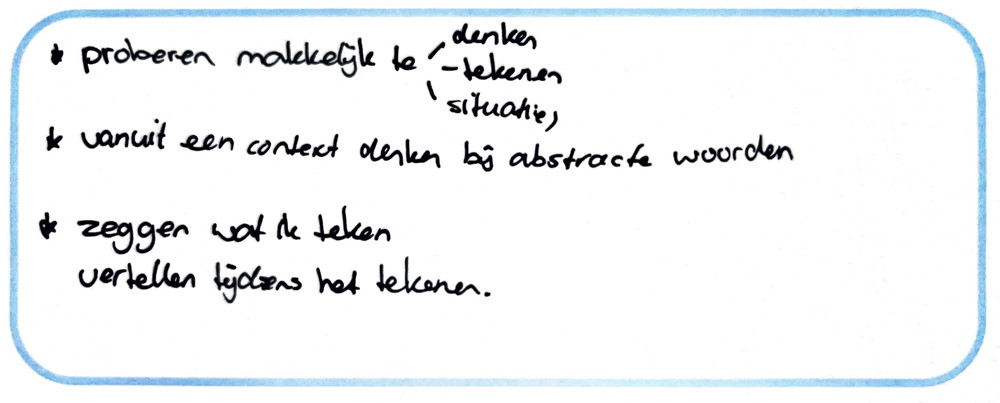 * proberen makkelijk te - denken
- tekenen
- situaties
* vanuit een context denken bij abstracte woorden
* zeggen wat ik teken
vertellen tijdens het tekenen.